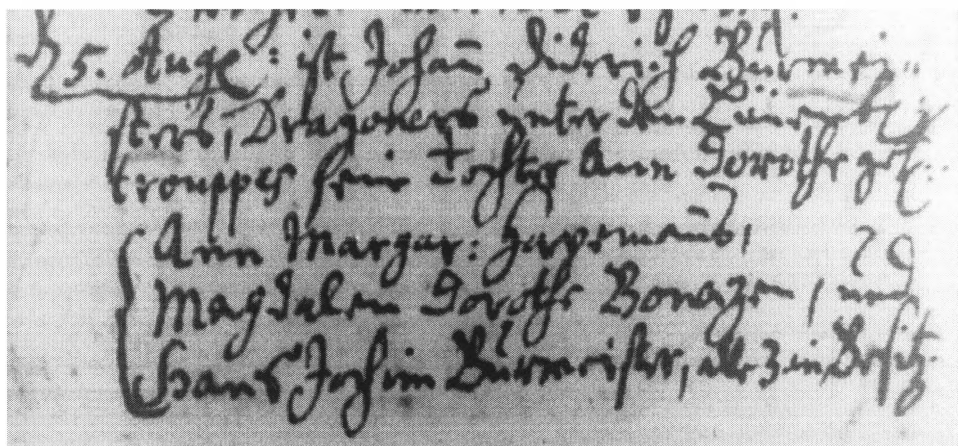 25. Aug: ist Johan̄ Diderich Burmei-
sters, Dragoners unter den
trouppes sein Tochter Ann Dorothe get:
Ann Margar: Hagemans,
Magdalen Dorothe und
Hans Jochim Burmeister, alle zu